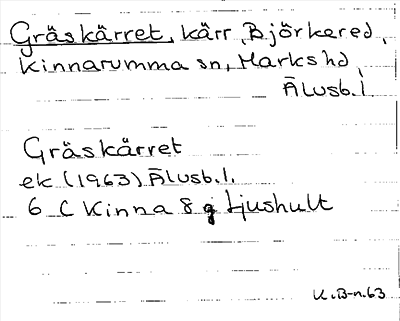 Gräskärret, kärr, Björkered,
Kinnarumma sn, Marks hd
Älvsb.l.
Gräskärret
ek (1963) Älvsb.l.
6 C Kinna 8 g Ljushult
K.B-n.63